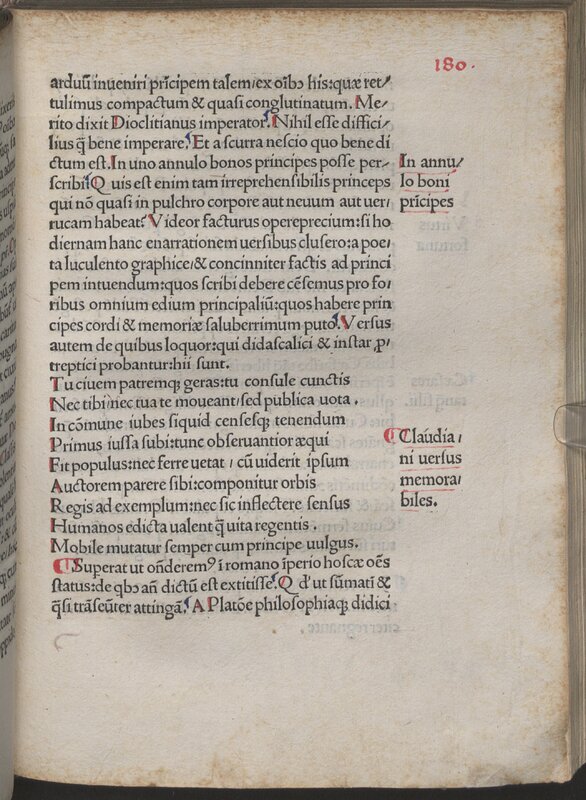 180.
arduū inveniri prīcipem talem/ex oībꝫ his:quæ ret/
tulimus compactum & quasi conglutinatum. Me/
rito dixit Dioclitianus imperator. Nihil esse diffici/
lius q̄ bene imperare. Et a scurra nescio quo bene di
ctum est. In uno annulo bonos principes posse per/
scribi. Quis est enim tam irreprehensibilis princeps
qui nō quasi in pulchro corpore aut neuum aut uer/
rucam habeat. Videor facturus opereprecium: si ho
diernam hanc enarrationem uersibus clusero: a poe/
ta luculento graphice/& concinniter factis ad princi
pem intuendum: quos scribi debere cēsemus pro fo/
ribus omnium edium principaliū: quos habere prin
cipes cordi & memoriæ saluberrimum puto. Versus
autem de quibus loquor: qui didascalici & instar ꝓ/
treptici probantur: hii sunt.
Tu ciuem patremqꝫ geras: tu consule cunctis
Nec tibi nec tua te moueant/sed publica uota.
In cōmune iubes siquid censesqꝫ tenendum
Primus iussa subi: tunc obseruantior æqui
Fit populus: nec ferre uetat / cū uiderit ipsum
Auctorem parere sibi: componitur orbis
Regis ad exemplum: nec sic inflectere sensus
Humanos edicta ualent q̄ uita regentis.
Mobile mutatur semper cum principe uulgus.
¶ Superat ut oñderemꝰ ī romano īperio hosce oēs
status: de qbꝫ añ dictū est extitisse. Qd' ut sūmatī &
q̄si trāseūter attingā. A Platōe philosophiaqꝫ didici
In annu/
lo boni
prīcipes
¶ Claudia/
ni uersus
memora/
biles.